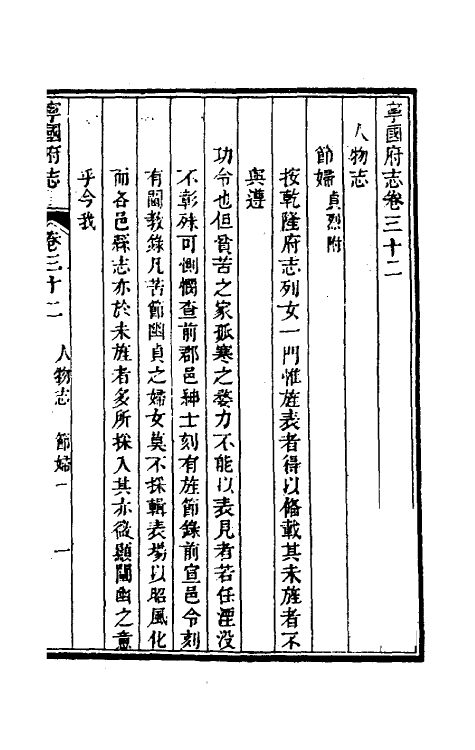 寧國府志卷三十二
人物志
節婦貞烈附
按乾隆府志列女一門惟旌表者得以備載其未旌者不
與遵
功令也但貧苦之家孤寒之嫠力不能以表見者若任湮沒
不彰殊可惻憫查前郡邑紳士刻有旌節錄前宣邑令刻
有闡教錄凡苦節幽貞之婦女莫不採輯表揚以昭風化
而各邑縣志亦於未旌者多所採入其亦微顯闡幽之意
乎今我
寧國府志 卷三十二 人物志 節婦一 一